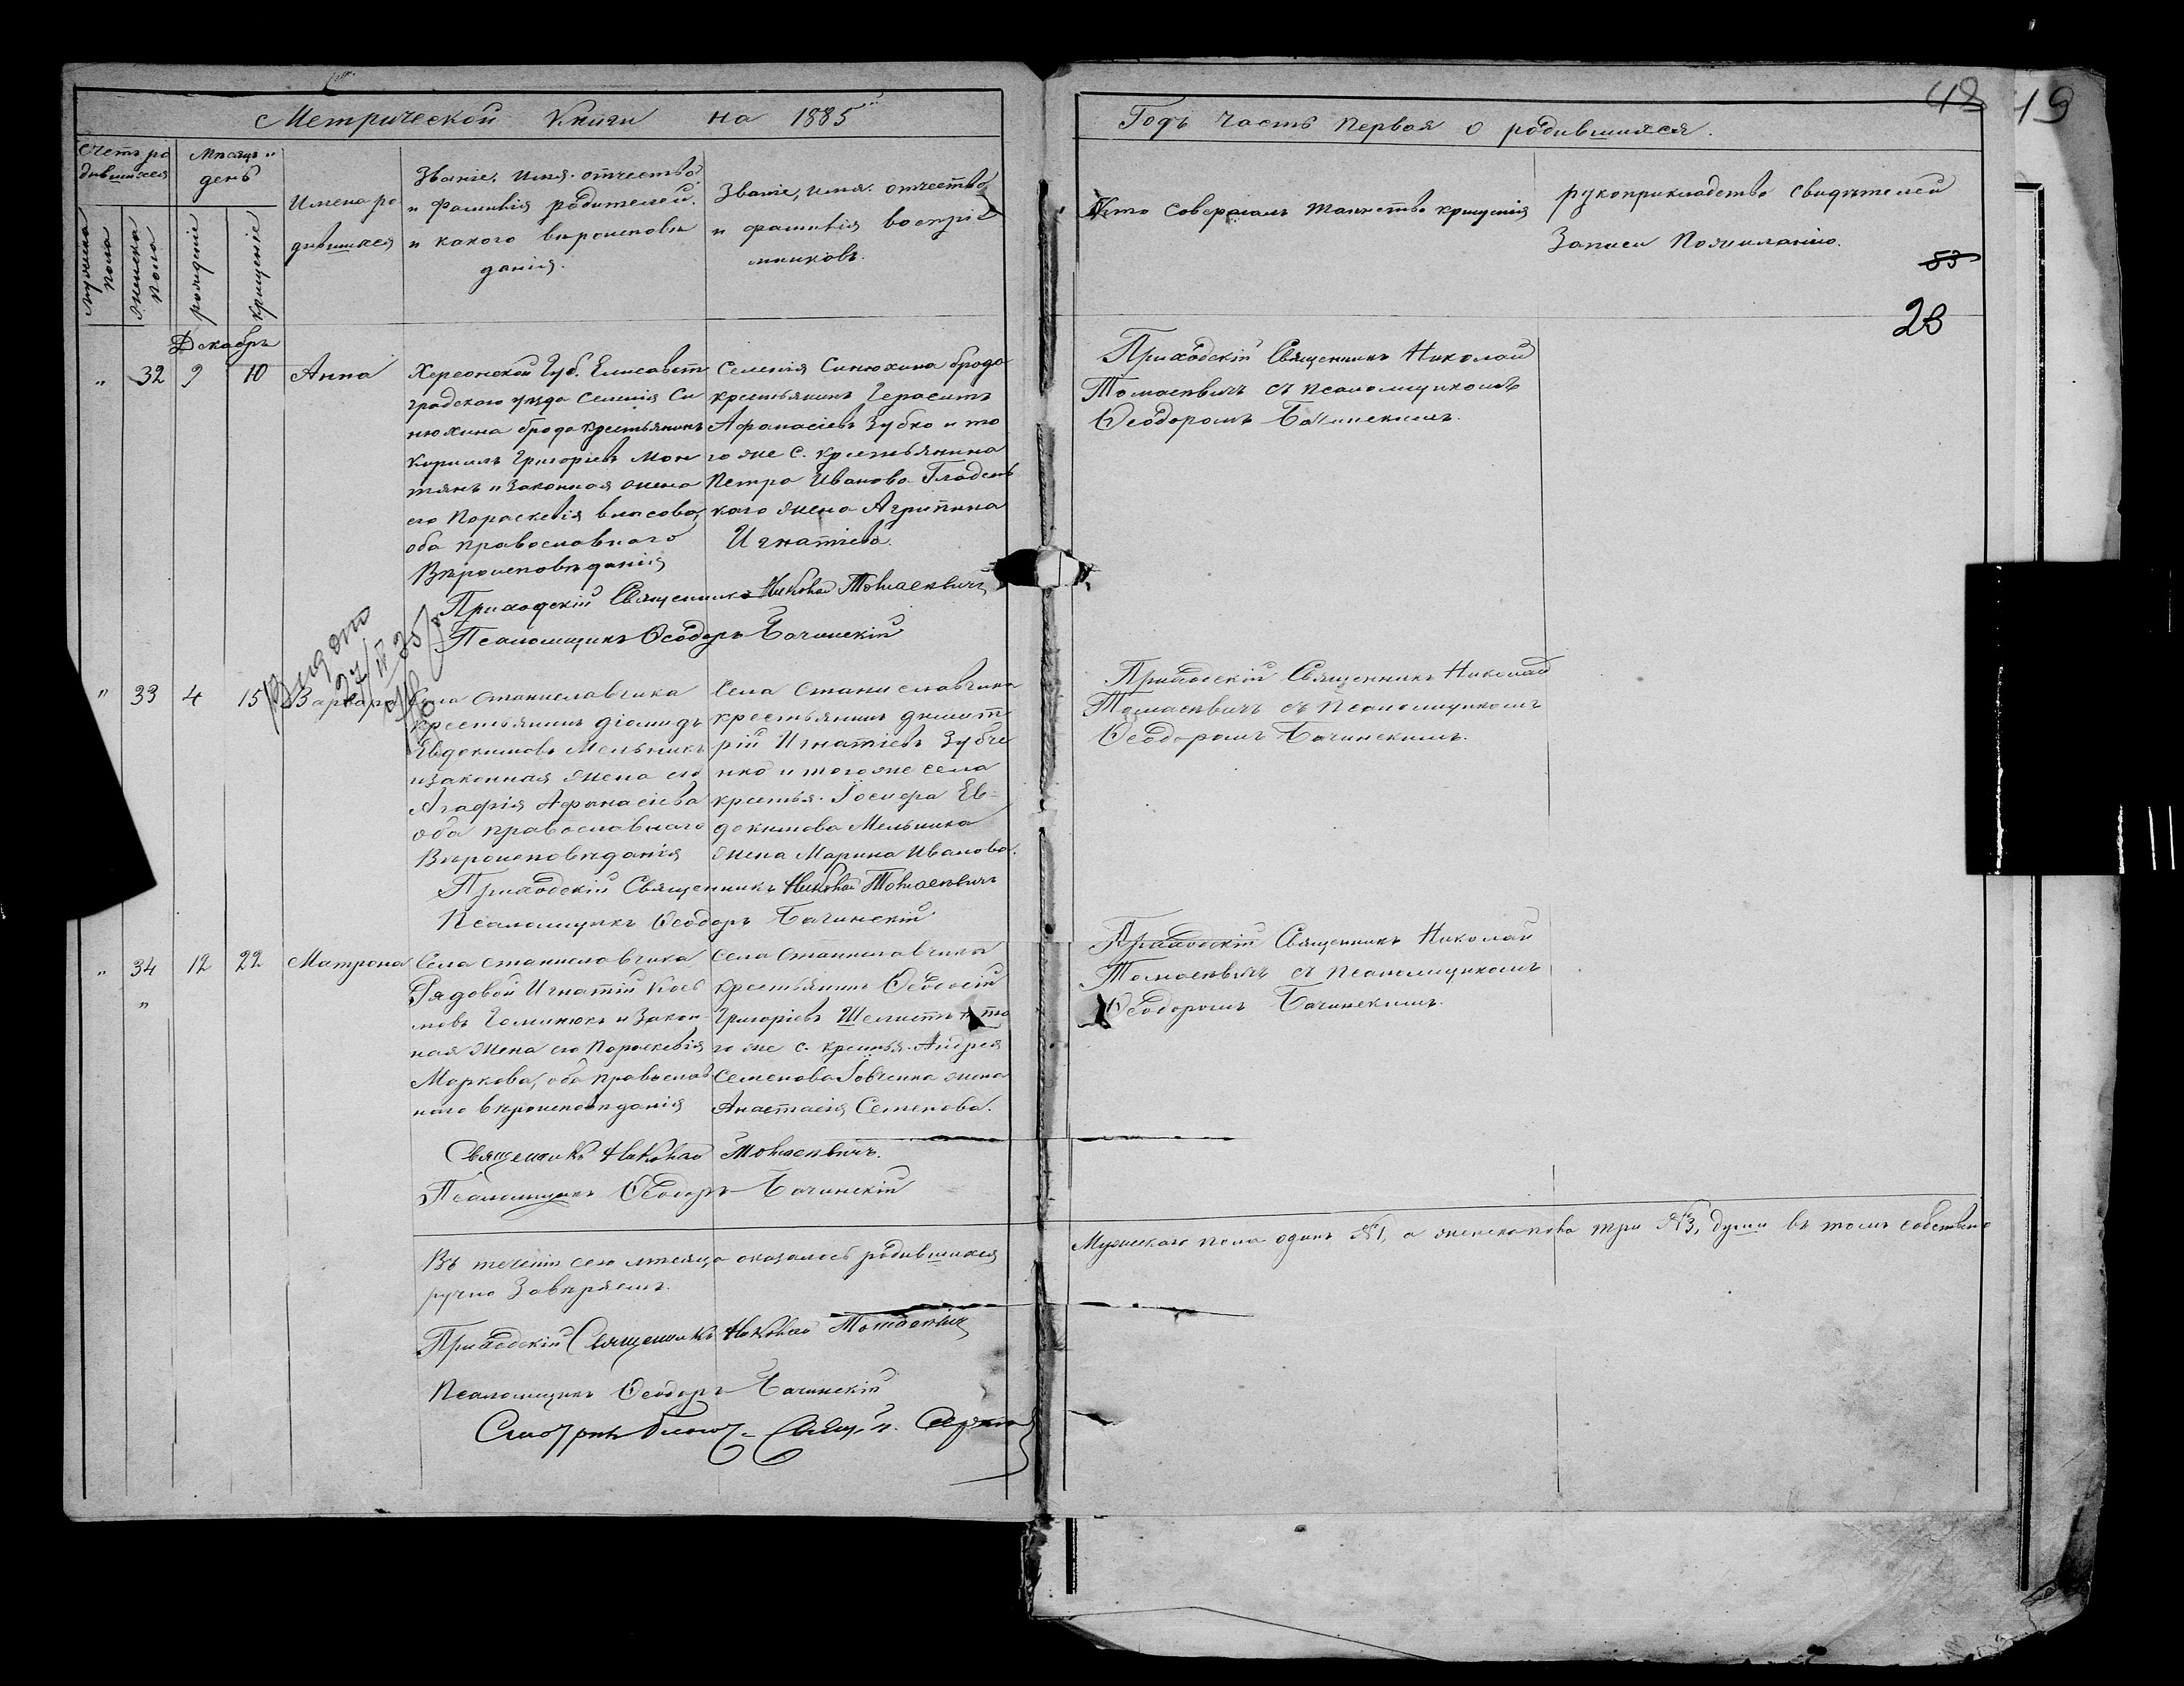 Метрической Книги на 1885й
Годъ часть первая о родившихся.
48
19
Счетъ ро
дившихся
Мѣсяцъ и
день
мужска
пола
женска
пола
рожденіе
крещеніе
Имена ро
дившихся
Званіе, имя, отчество
и фамилія родителей,
и какого вѣроисповѣ
данія.
Званіе, имя, отчество
и фамилія воспріе
мниковъ.
Кто совершалъ таинство крещенія
рукоприкладство свидѣтелей
Записи по желанію.
53
28
Декабрь
" 32 9 10 Анна
Херсонской Губ. Елисавет
градскаго уѣзда Селенія Си
нюхина брода крестьянинъ
Кириллъ Григорьевъ Мон
тянъ и законная жена
его Параскевія Власова,
оба православнаго
Вѣроисповѣданія
Селенія Синюхина брода
крестьянинъ Герасимъ
Афанасіевъ Зубко и то
го же с. крестьянина
Петра Иванова Гладень
каго жена Агрипина
Игнатіева.
Приходскій Священникъ Николай
Томасевичъ съ псаломщикомъ
Ѳеодоромъ Бачинскимъ.
Приходскій Священникъ Николай Томасевичъ
Псаломщикъ Ѳеодоръ Бачинскій
" 33 4 15 Варвара
Села Станиславчика
крестьянинъ Діомидъ
Евдокимовъ Мельникъ
и законная жена его
Агафія Афанасіева
оба православнаго
Вѣроисповѣданія
Села Станиславчика
крестьянинъ Димит
рій Игнатіевъ Зубче
нко и того же села
крестья. Іосифа Ев=
докимова Мельника
жена Марина Иванова.
Приходскій Священникъ Николай
Томасевичъ съ Псаломщикомъ
Ѳеодоромъ Бачинскимъ.
Приходскій Священникъ Николай Томасевичъ
Псаломщикъ Ѳеодоръ Бачинскій
" 34 12 22 Матрона
"
Села Станиславчика
Рядовой Игнатій
Гоминюкъ и закон
ная жена его Параскевія
Маркова, оба православ
наго вѣроисповѣданія
Села Станиславчика
крестьянинъ Ѳеодосій
Григорьевъ и то
го же с. крестья. Андрея
Семенова жена
Анастасія Семенова.
Приходскій Священникъ Николай
Томасевичъ съ псаломщикомъ
Ѳеодоромъ Бачинскимъ.
Священникъ Николай Томасевичъ.
Псаломщикъ Ѳеодоръ Бачинскій
Въ теченіи сего мѣсяца оказалось родившихся
Мужескаго пола одинъ №1, а женска пова три №3, души въ томъ собствено
ручно Завѣряемъ.
Приходскій Священникъ Николай Томасевичъ
Псаломщикъ Ѳеодоръ Бачинскій